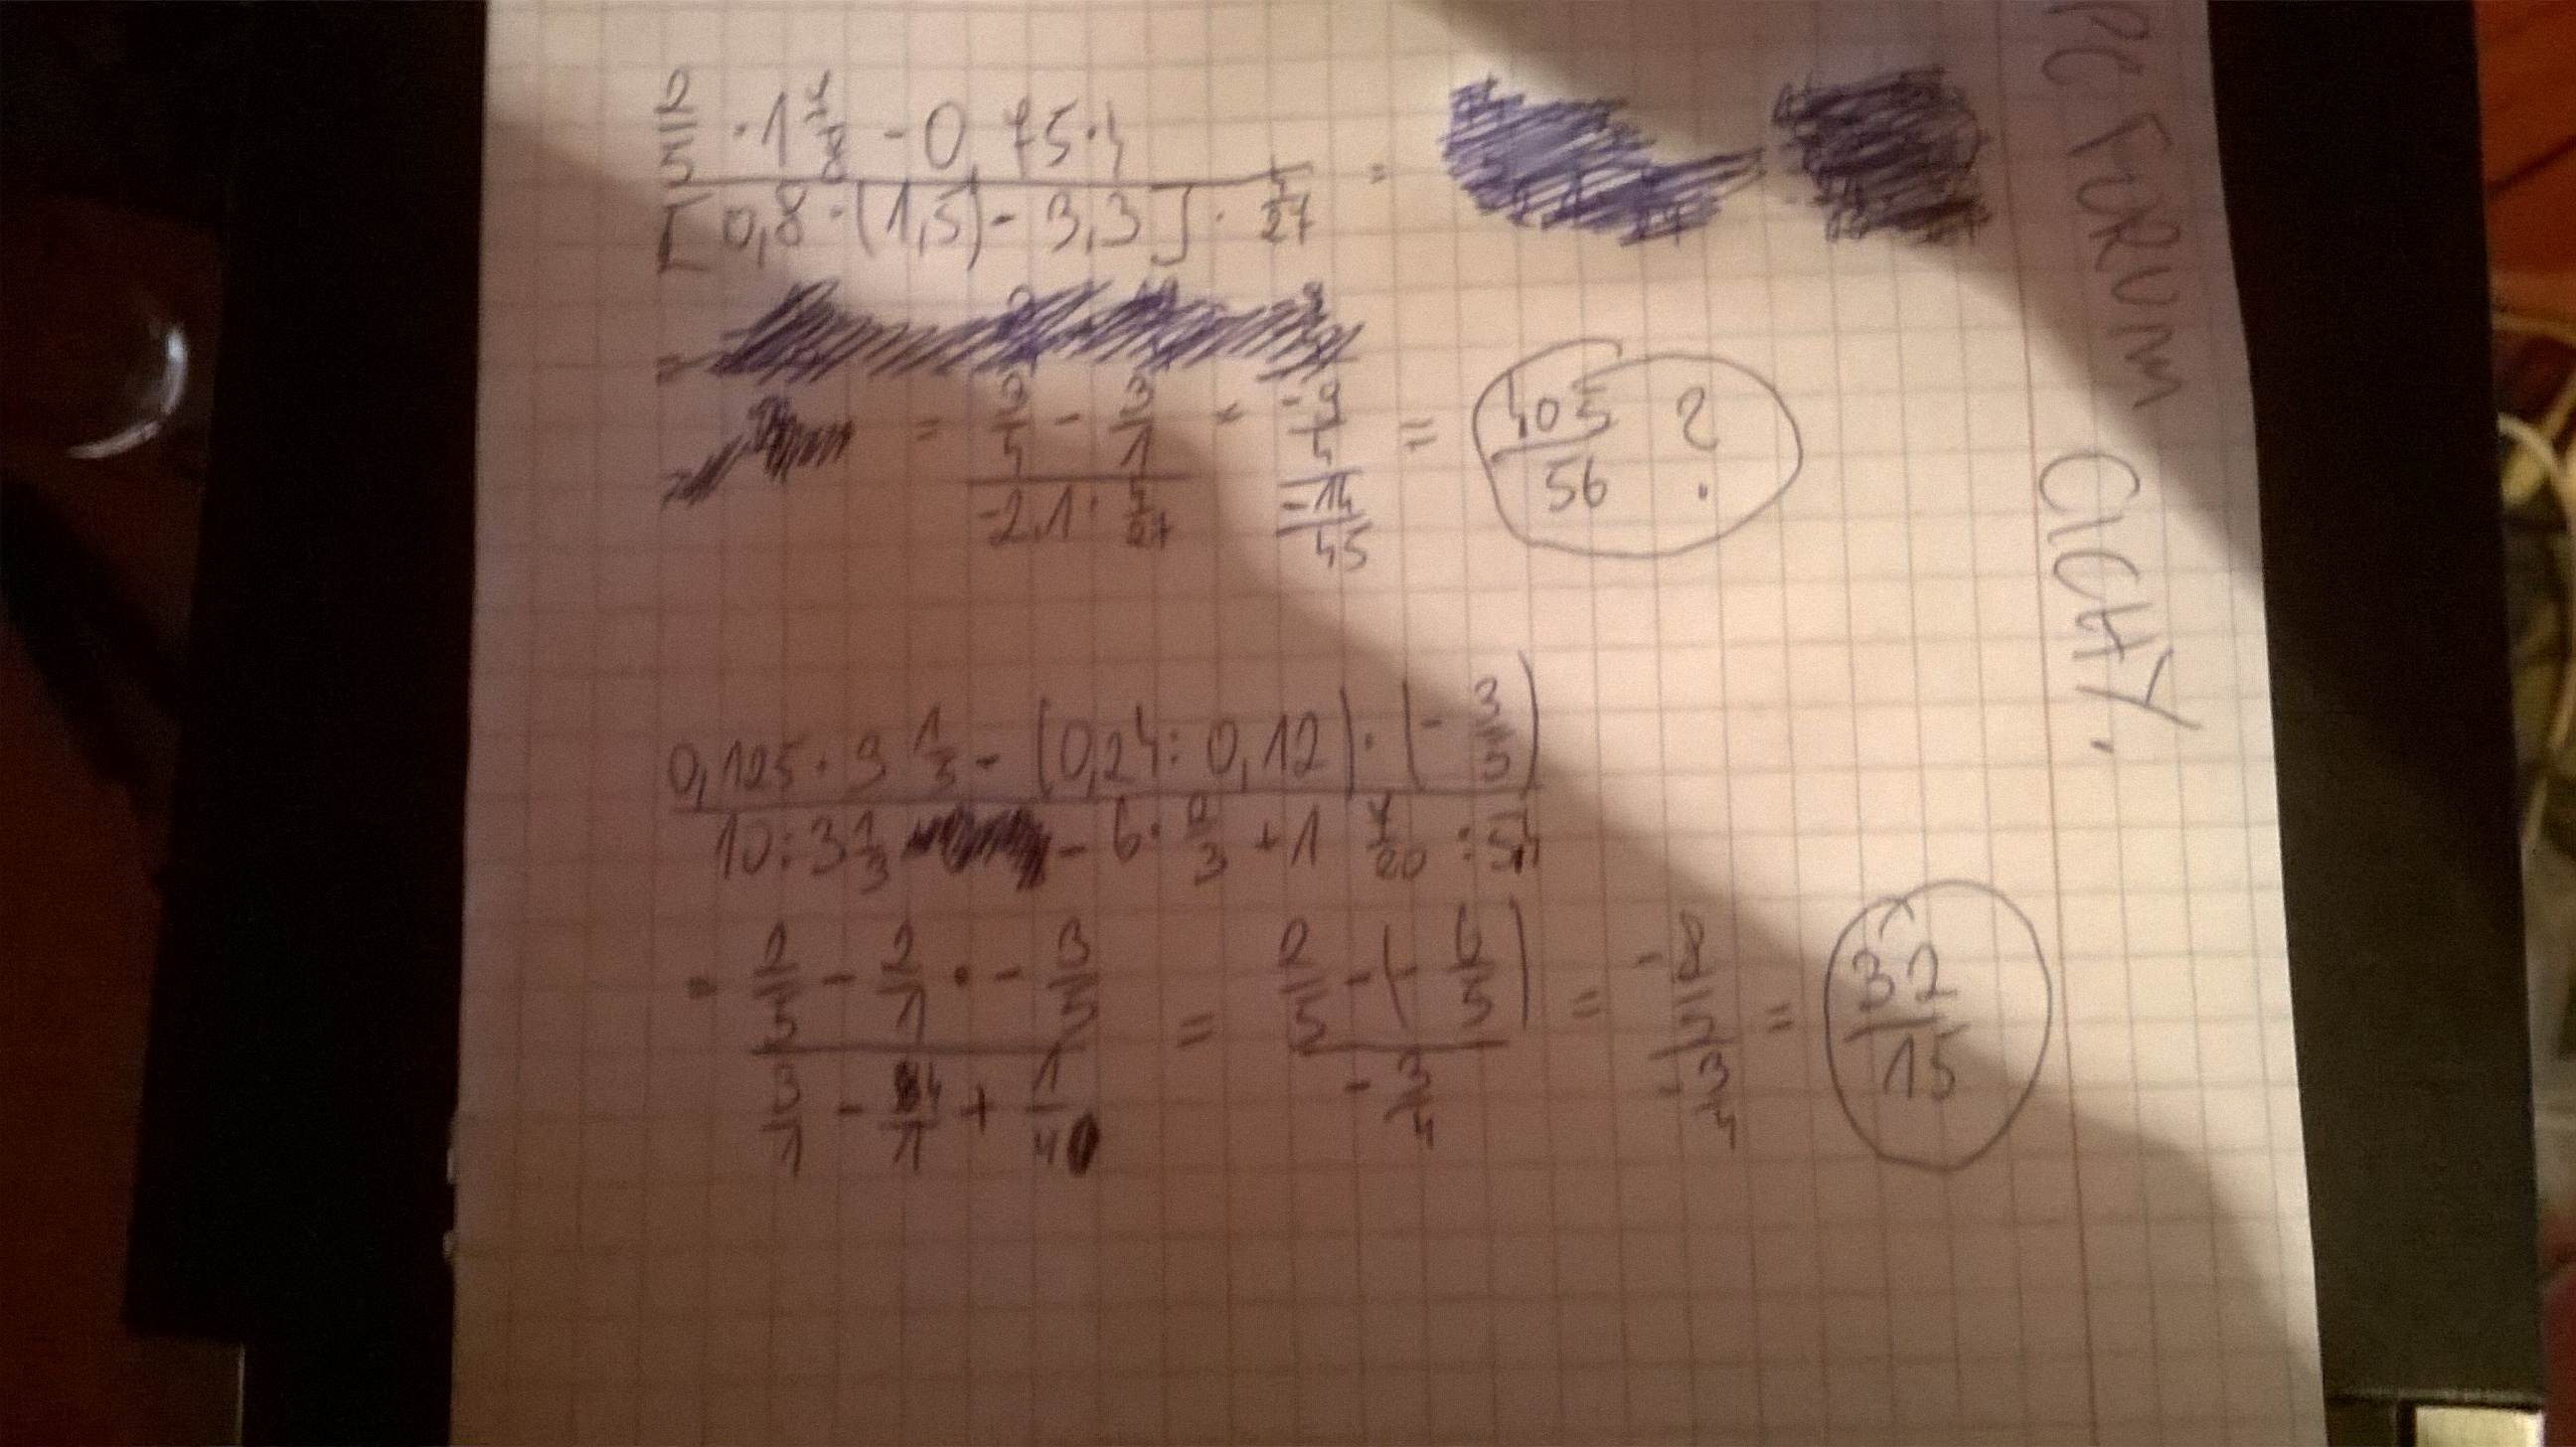 2/5 · 1 7/8 - 0,75·4
[0,8·(1,5)- 3,3]· 4/27 =
= 3/5 - 3/1 / -2,1· 4/27 = -9/5 / -14/45 = 405/56 ?
0,125· 3 1/5 - (0,24:0,12)·(- 3/5)
10:3 1/3 - 6· 2/3 + 1
= 2/5 - 2/1 · - 3/5 / 3/1 - 4/1 + 1/4 = 2/5 -(- 6/5) / - 3/4 = -8/5 / -3/4 = 32/15
PC FORUM
CICHY.